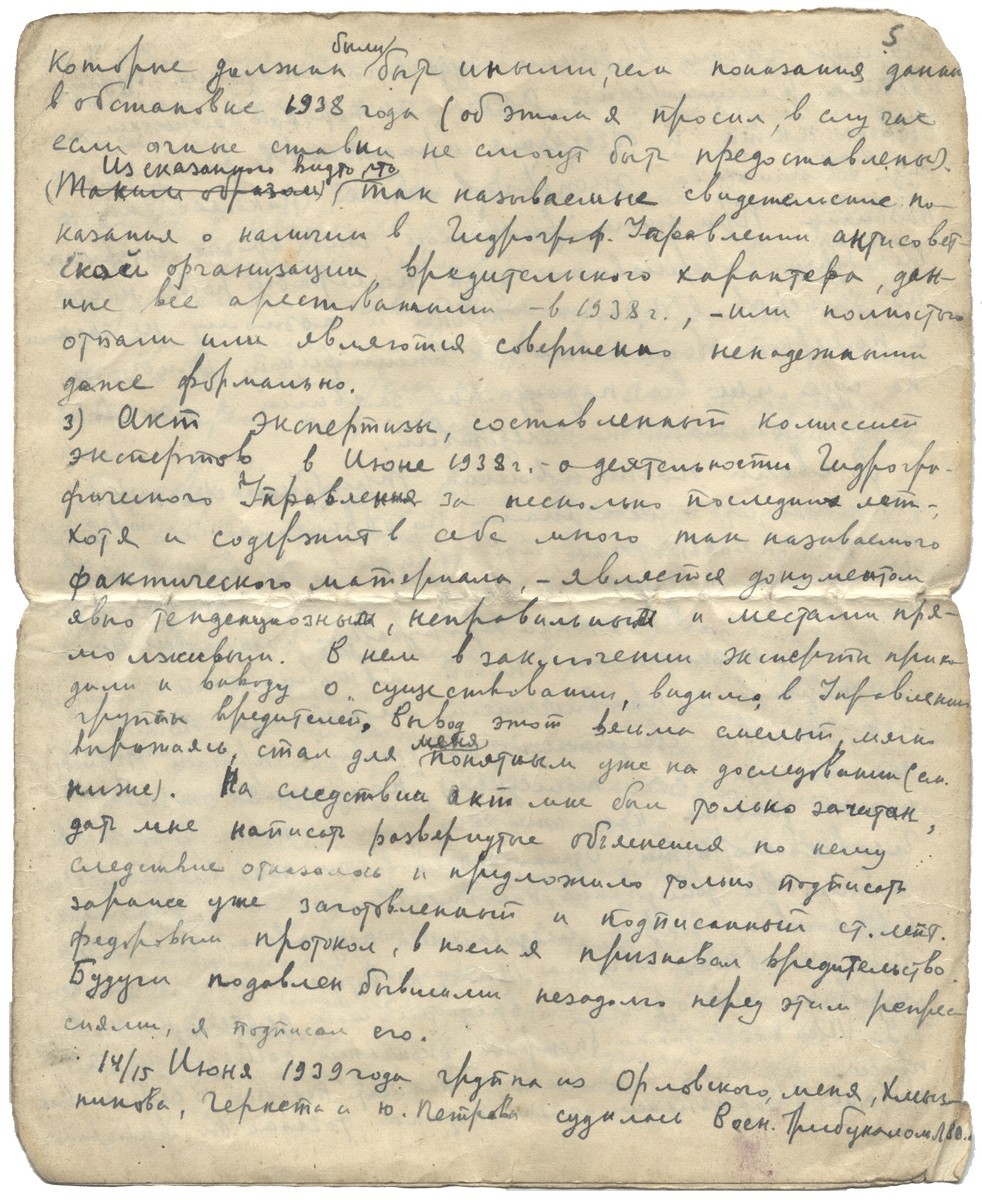 5
которые должны были быть иными, чем показания, данны
в обстановке 1938 года (об этом я просил, в случае
если очные ставки не смогут быть предоставлены).
Из сказанного видто, что
(Таким образом) так называемые свидетельские по-
казания о наличии в Гидрограф. Управлении антисовет-
ской организации, вредительского характера, дан-
ные все арестованными - в 1938 г., - или полностью
отпали или являются совершенно ненадежными
даже формально.
3) Акт экспертизы, составленный комиссией
экспертов в Июне 1938 г. - о деятельности Гидрогра-
фического Управления за несколько последних лет -,
хотя и содержит в себе много так называемого
фактического материала, - является документом
явно тенденциозным, неправильным и местами пря-
мо лживым. В нем в заключении эксперты прихо
дили к выводу о существовании, видимо, в Управлении
группы вредителей. Вывод этот весьма смелый, мягко
выражаясь, стал для меня понятным уже на доследовании (см.
ниже). На следствии акт мне был только зачитан,
дать мне написать развернутые объяснения по нему
следствие отказалось и предложило только подписать
заранее уже заготовленный и подписанный ст. лейт.
Федоровым протокол, в коем я признавал вредительство.
Будучи подавлен бывшими незадолго перед этим репрес
сиями, я подписал его.
14/15 Июня 1939 года группа из Орловского, меня, Хмыз-
никова, Гернета и Ю. Петрова судилась Воен. Трибуналом ЛВО.